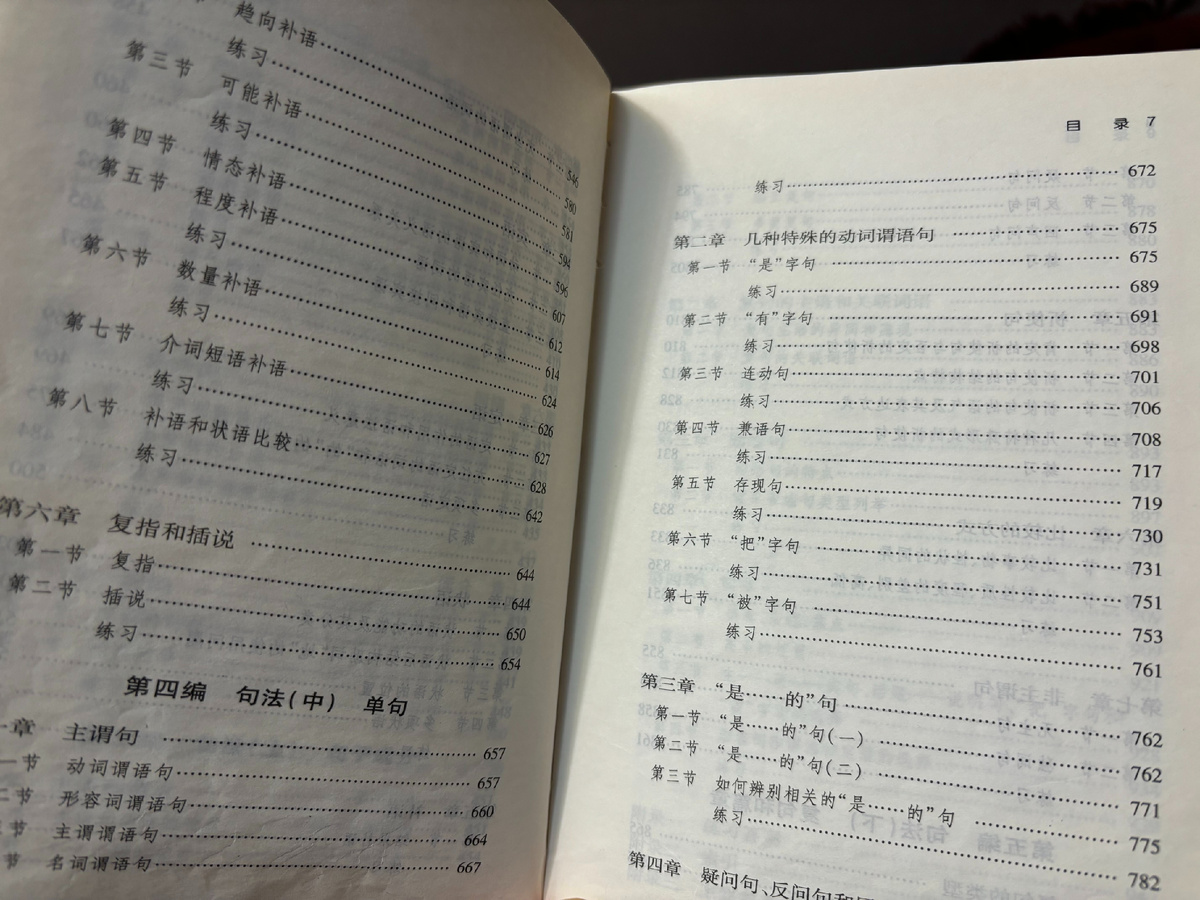 节 趋向补语……546
练习……580
第三节 可能补语……581
练习……594
第四节 情态补语……596
第五节 程度补语……607
练习……612
第六节 数量补语……614
练习……624
第七节 介词短语补语……626
练习……627
第八节 补语和状语比较……628
练习……642
第六章 复指和插说……644
第一节 复指……644
第二节 插说……650
练习……654
第四编 句法(中) 单句
章 主谓句……657
一节 动词谓语句……657
二节 形容词谓语句……660
节 主谓谓语句……664
节 名词谓语句……667
目 录 7
练习……672
第二章 几种特殊的动词谓语句……675
第一节 “是”字句……675
练习……689
第二节 “有”字句……691
练习……698
第三节 连动句……701
练习……706
第四节 兼语句……708
练习……717
第五节 存现句……719
练习……730
第六节 “把”字句……731
练习……751
第七节 “被”字句……753
练习……761
第三章 “是……的”句……762
第一节 “是……的”句(一)……762
第二节 “是……的”句(二)……771
第三节 如何辨别相关的“是……的”句……775
练习……782
第四章 疑问句、反问句和